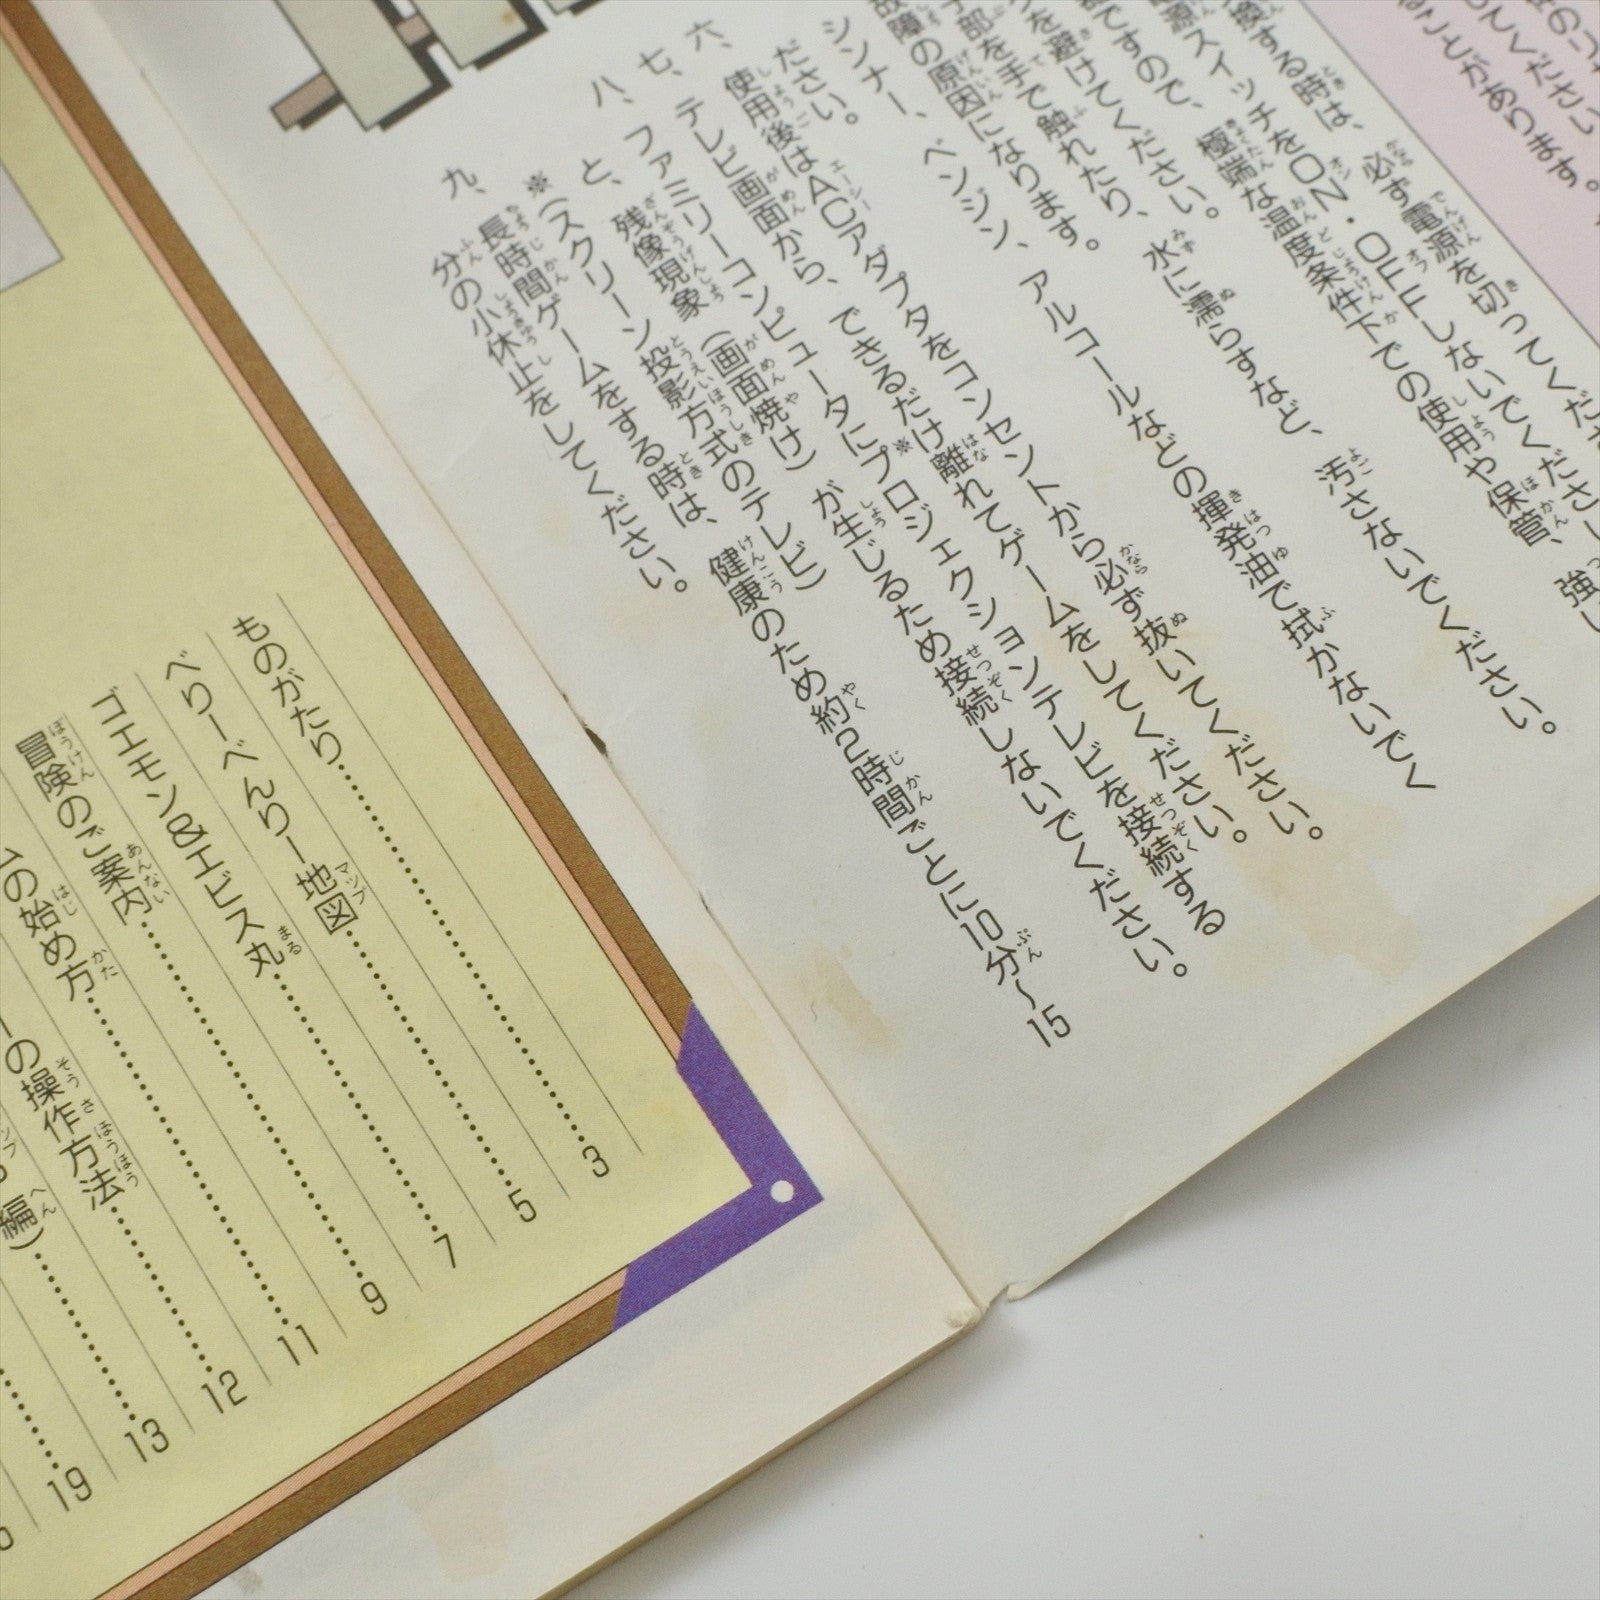 ことがあります。
てください
換する時は、必ず電源を切ってくだ
源スイッチをON・OFFしないでくださ
ですので、極端な温度条件下での使用や保管、強い
を避けてください。
部を手で触れたり、水に濡らすなど、汚さないでください。
故障の原因になります。
シンナー、ベンジン、アルコールなどの揮発油で拭かないでく
ださい。
六、使用後はACアダプタをコンセントから必ず抜いてください。
七、テレビ画面から、できるだけ離れてゲームをしてください。
八、ファミリーコンピュータに※プロジェクションテレビを接続する
と、残像現象（画面焼け）が生じるため接続しないでください。
※（スクリーン投影方式のテレビ）
九、長時間ゲームをする時は、健康のため約2時間ごとに10分〜15
分の小休止をしてください。
ものがたり 3
べりーべんりー地図 5
ゴエモン&エビス丸 7
冒険のご案内 9
の始め方 11
ーの操作方法 12
編） 13
19